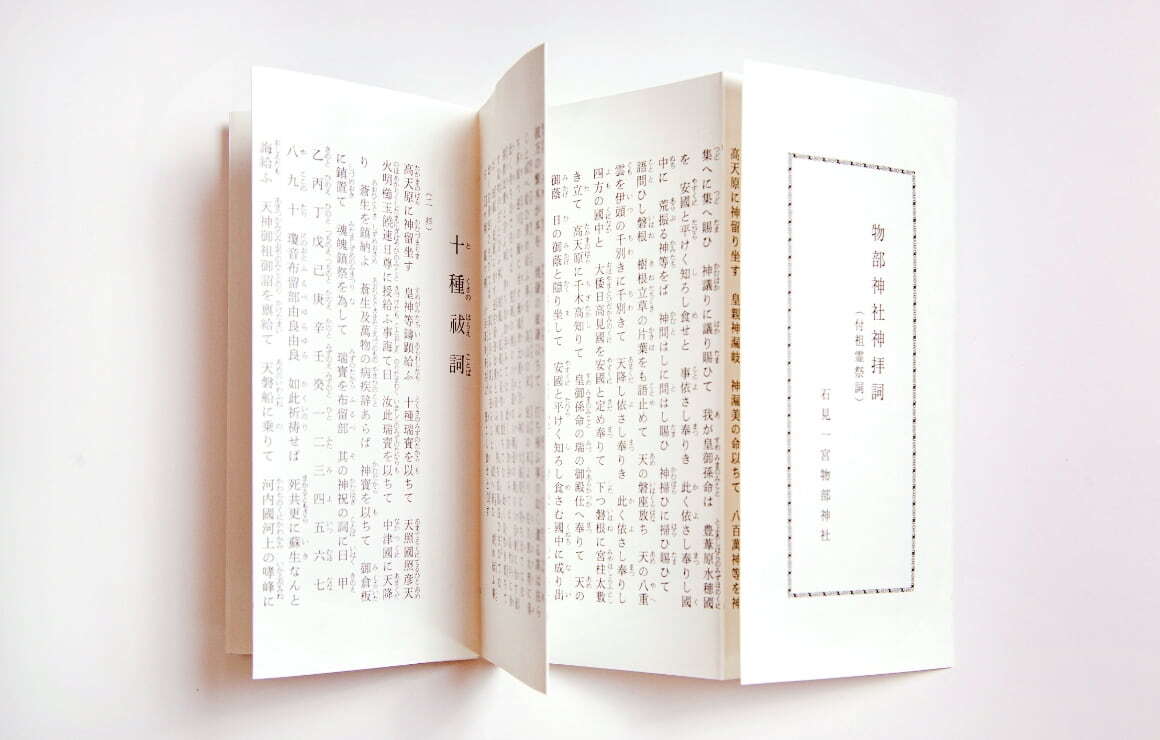 物部神社神拝詞
（付祖霊祭詞）
石見一宮物部神社
高天原に神留り坐す　皇親神漏岐　神漏美の命以ちて　八百萬神等を神
集へに集へ賜ひ　神議りに議り賜ひて　我が皇御孫命は　豊葦原水穂國
を　安國と平けく知ろし食せと　事依さし奉りき　此く依さし奉りし國
中に　荒振る神等をば　神問はしに問はし賜ひ　神掃ひに掃ひ賜ひて
語問ひし磐根　樹根立草の片葉をも語止めて　天の磐座放ち　天の八重
雲を伊頭の千別きに千別きて　天降し依さし奉りき　此く依さし奉りし
四方の國中と　大倭日高見國を安國と定め奉りて　下つ磐根に宮柱太敷
き立て　高天原に千木高知りて　皇御孫命の瑞の御殿仕へ奉りて　天の
御蔭　日の御蔭と隠り坐して　安國と平けく知ろし食さむ國中に成り出
十種祓詞
（二種）
高天原に神留坐す　皇神等鋳顕給ふ　十種瑞寳を以ちて　天照國照彦天
火明櫛玉饒速日尊に授給ふ事誨て曰　汝此瑞寳を以ちて　中津國に天降
り　蒼生を鎮納よ　蒼生及萬物の病疾辞あらば　神寳を以ちて　御倉板
に鎮置て　魂魄鎮祭を為して　瑞寳を布留部　其の神祝の詞に曰　甲
乙　丙　丁　戊　己　庚　辛　壬　癸　一　二　三　四　五　六　七
八　九　十　瓊音布留部由良由良　如此祈祷せば　死共更に蘇生なんと
誨給ふ　天神御祖御詔を禀給て　天磐船に乗りて　河内國河上の哮峰に